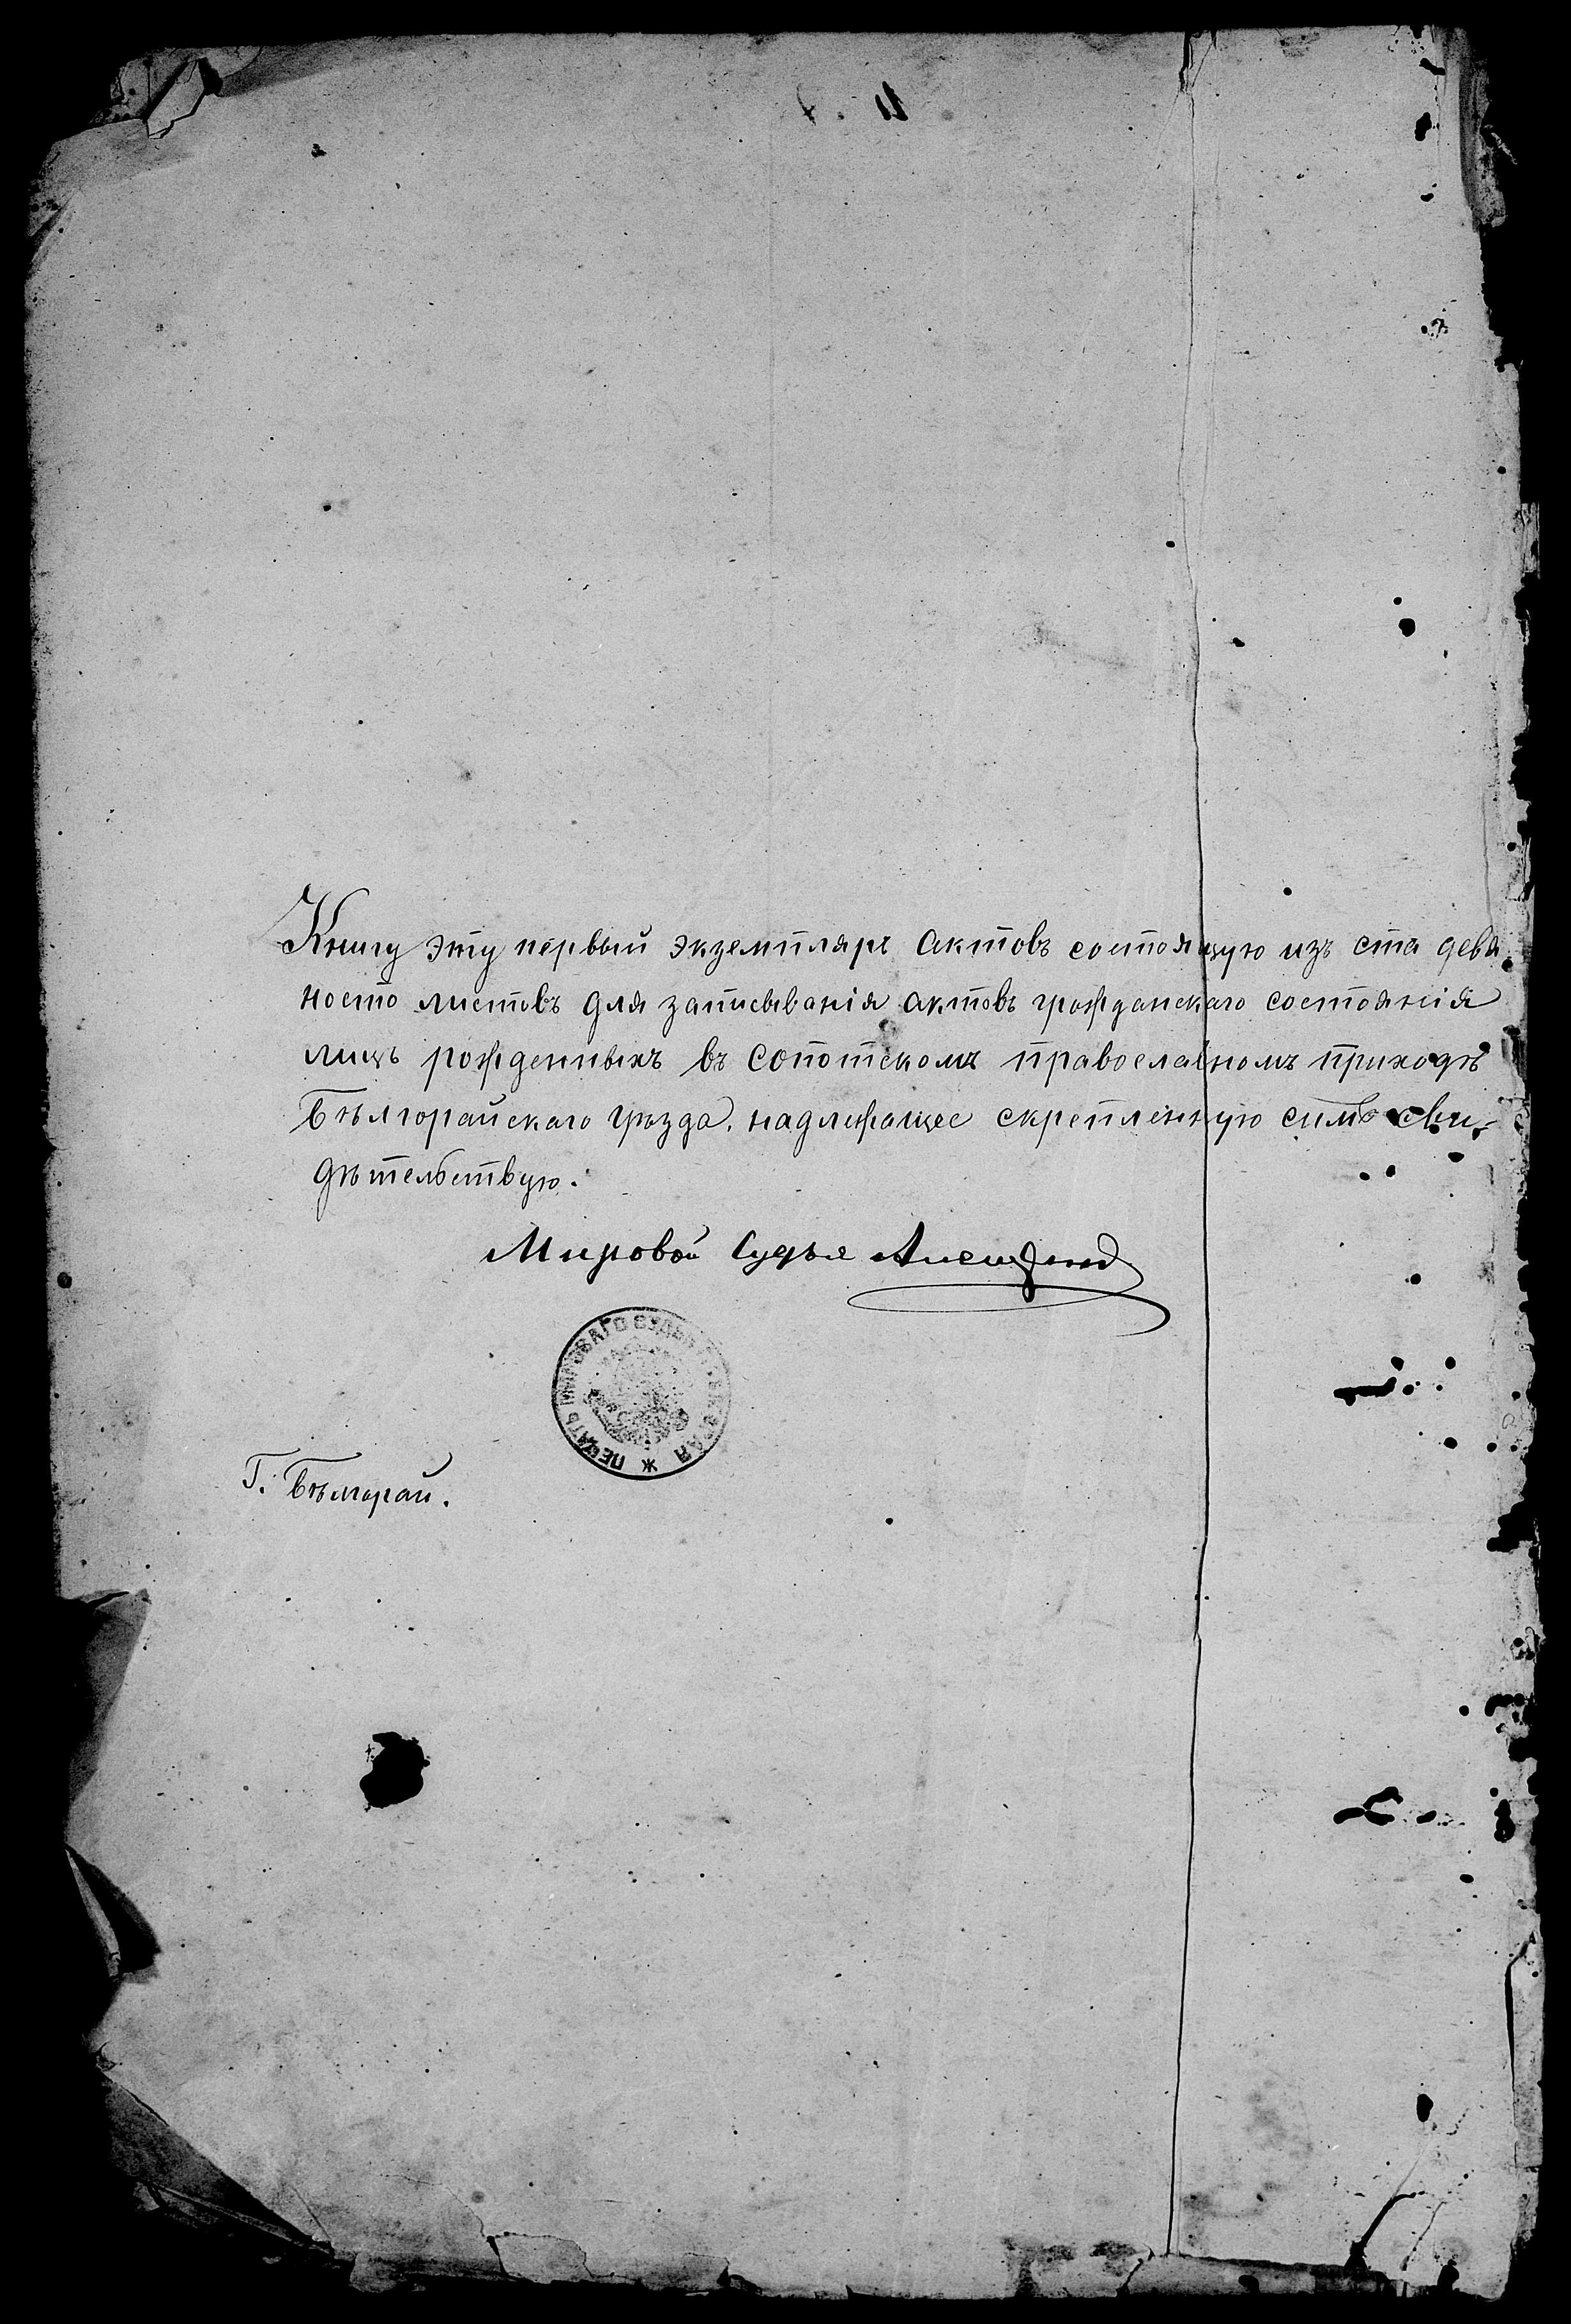 Книгу эту первый экземпляръ актовъ состоящую изъ ста девя
носто листовъ для записыванія актовъ гражданскаго состоянія
лицъ рожденныхъ въ Сопотскомъ православномъ приходѣ
Бѣлгорайскаго уѣзда, надлежаще скрепленную симъ сви-
дѣтельствую.
Мировой Судья
ПЕЧАТЬ МИРОВАГО СУДЬИ
Г. Бѣлгорай.